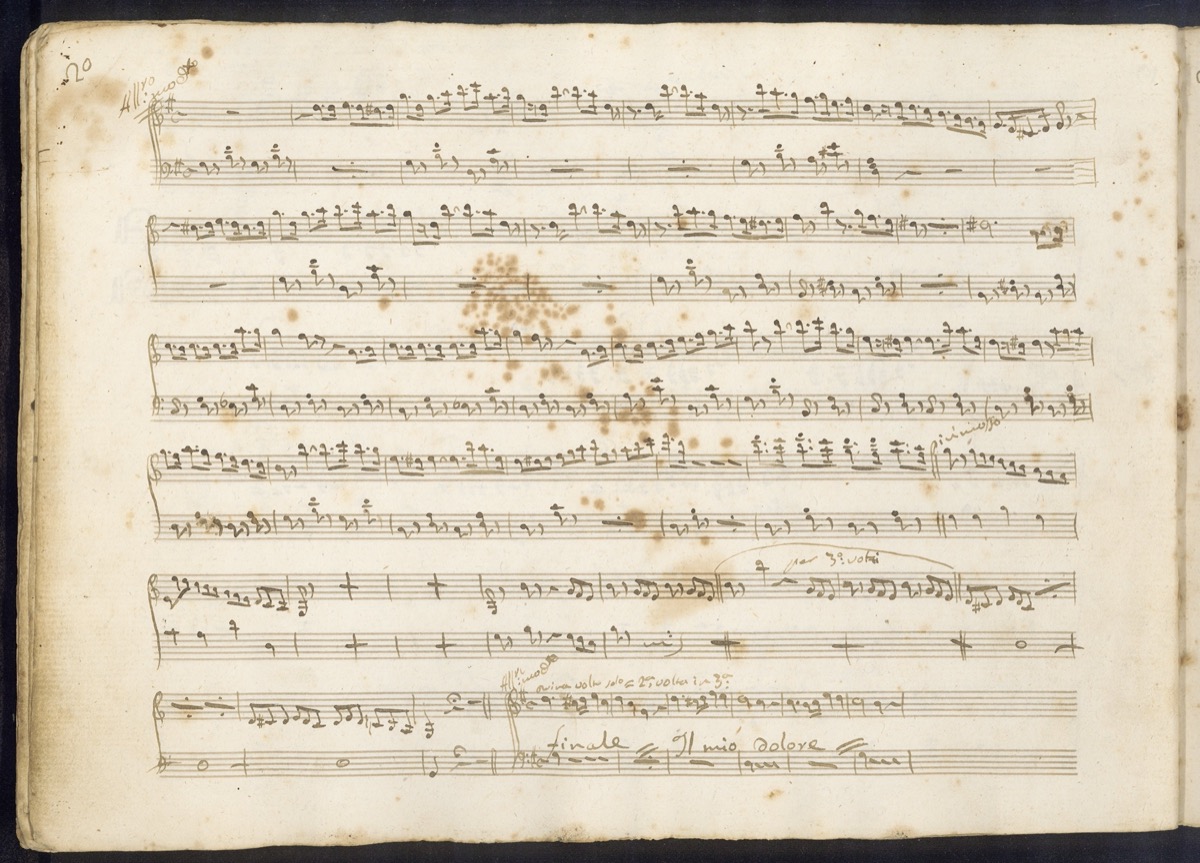 20
All.ro mod.to
più mosso
per 3.a volta
All.ro mod.to
prima volta solo e 2.a volta in 3.a
finale Il mio dolore